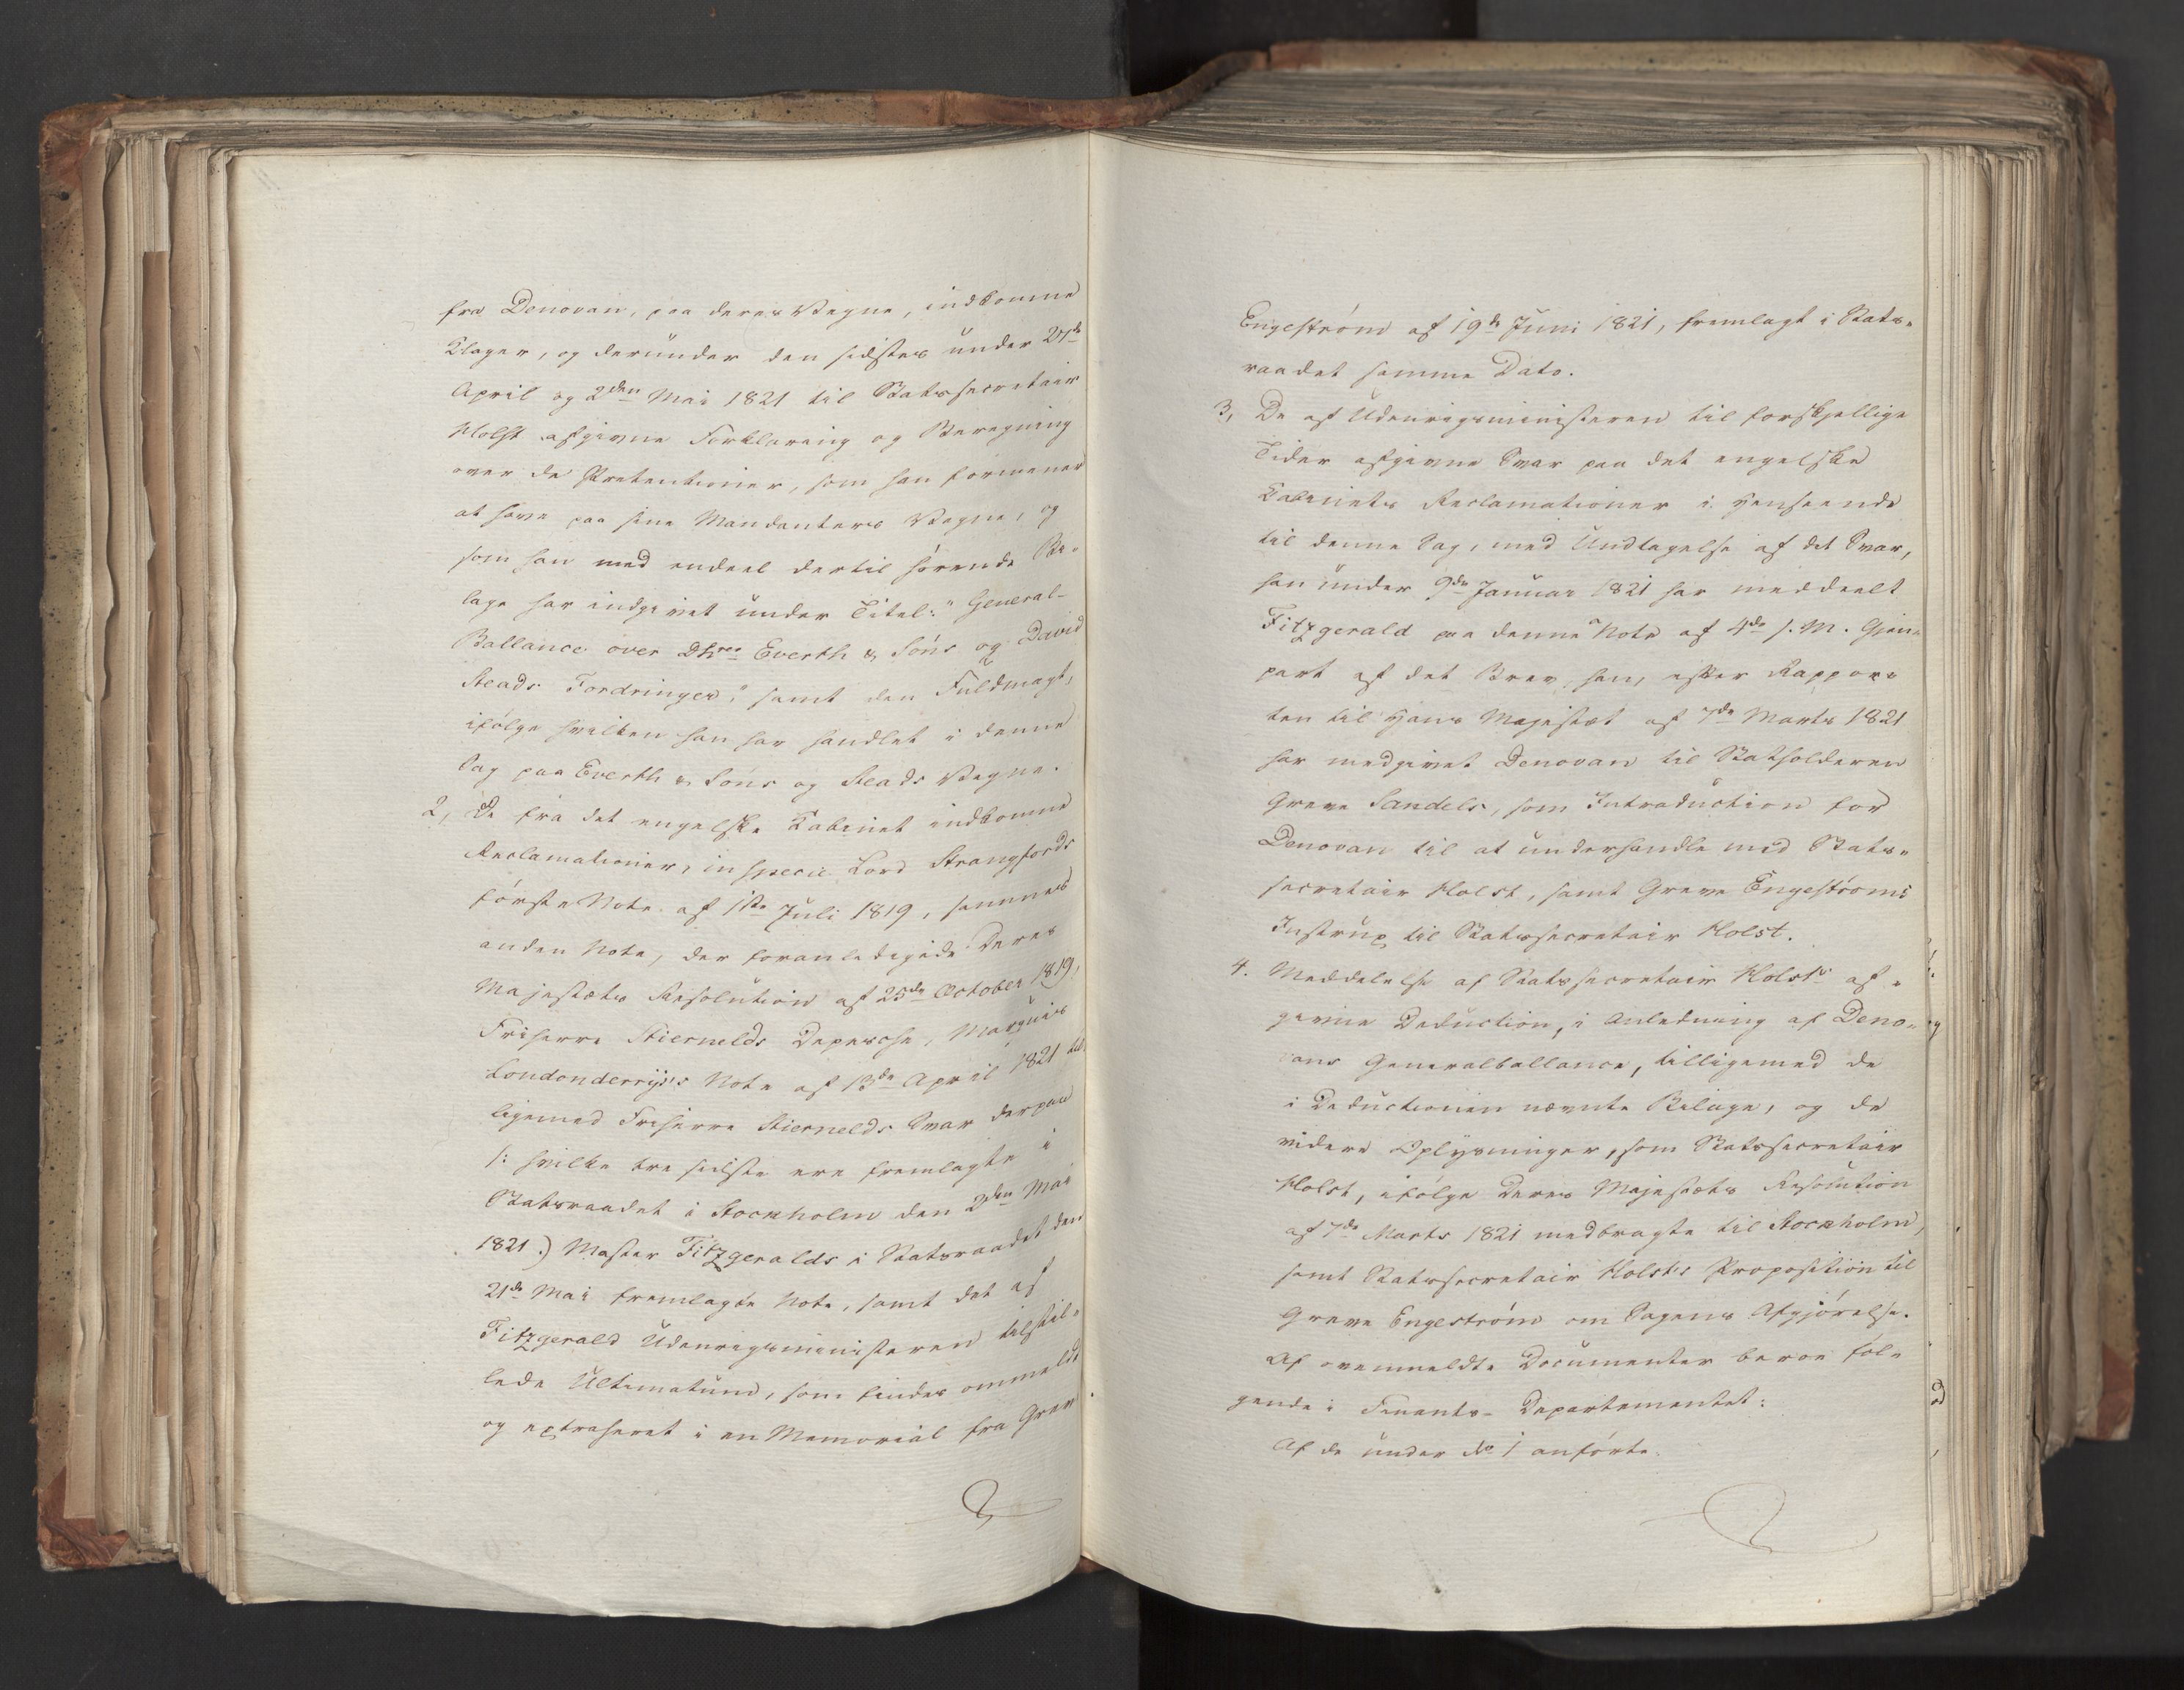 fra Denovan, paa deres Vegne, indkomne
Klager, og deründer den sidstes ünder 21de
April og 2den Mai 1821 til Statssecretair
Holst afgivne Forklaring og Beregning
over de Prætentioner, som han formener
at have paa sine Mandanters Vegne, og
som han med endeel dertil hørende Bi-
lage har indgivet ünder Titel: "General-
Ballance over Dhrr Everth & Sons og David
Reads Fordringer", samt den Füldmagt,
ifølge hvilken han har handlet i denne
Sag paa Everth & Sons og Reads Vegne.
2, De fra det engelske Cabinet indkomne
Reclamationer, in specie Lord Strangfords
første Note af 1ste Juli 1819, sammes
anden Note, der foranledigede Deres
Majestæts Resolution af 25de October 1819,
Friherre Stiernelds Depesche, Marquis
Londonderrys's Note af 13de April 1821 til-
ligemed Friherre Stiernelds Svar derpaa
/: hvilke tre sidste ere fremlagte i
Statsraadet i Stockholm den 2den Mai
1821.) Master Fitzgeralds i Statsraadet den
21de Mai fremlagte Note, samt det af
Fitzgerald Udenrigsministeren tilstil-
lede Ultimatum, som findes ommeldt
og extraheret i en Memorial fra Grev
Engeström af 19de Juni 1821, fremlagt i Stats-
raadet samme Dato.
3, De af Udenrigsministeren til forskjellige
Tider afgivne Svar paa det engelske
Cabinets Reclamationer i Henseende
til denne Sag, med Undtagelse af det Svar,
han ünder 9de Januar 1821 har meddeelt
Fitzgerald paa dennes Note af 4de s. M. Gjen-
part af det Brev, han, efter Rappor-
ten til Hans Majestæt af 7de Marts 1821
har medgivet Denovan til Statholderen
Greve Sandels, som Introduction for
Denovan til at underhandle med Stats-
secretair Holst, samt Greve Engeströms
Instrux til Statssecretair Holst.
4. Meddelelse af Statssecretair Holsts af-
givne Deduction, i Anledning af Deno-
vans Generalballance, tilligemed de
i Deductionen nævnte Bilage, og de
videre Oplysninger, som Statssecretair
Holst, ifølge Deres Majestæts Resolution
af 7de Marts 1821 medbragte til Stockholm,
samt Statssecretair Holsts Proposition til
Greve Engeström om Sagens Afgjørelse.
Af ovenmeldte Documenter beroe føl-
gende i Finants-Departementet:
Af de ünder No 1 anførte.